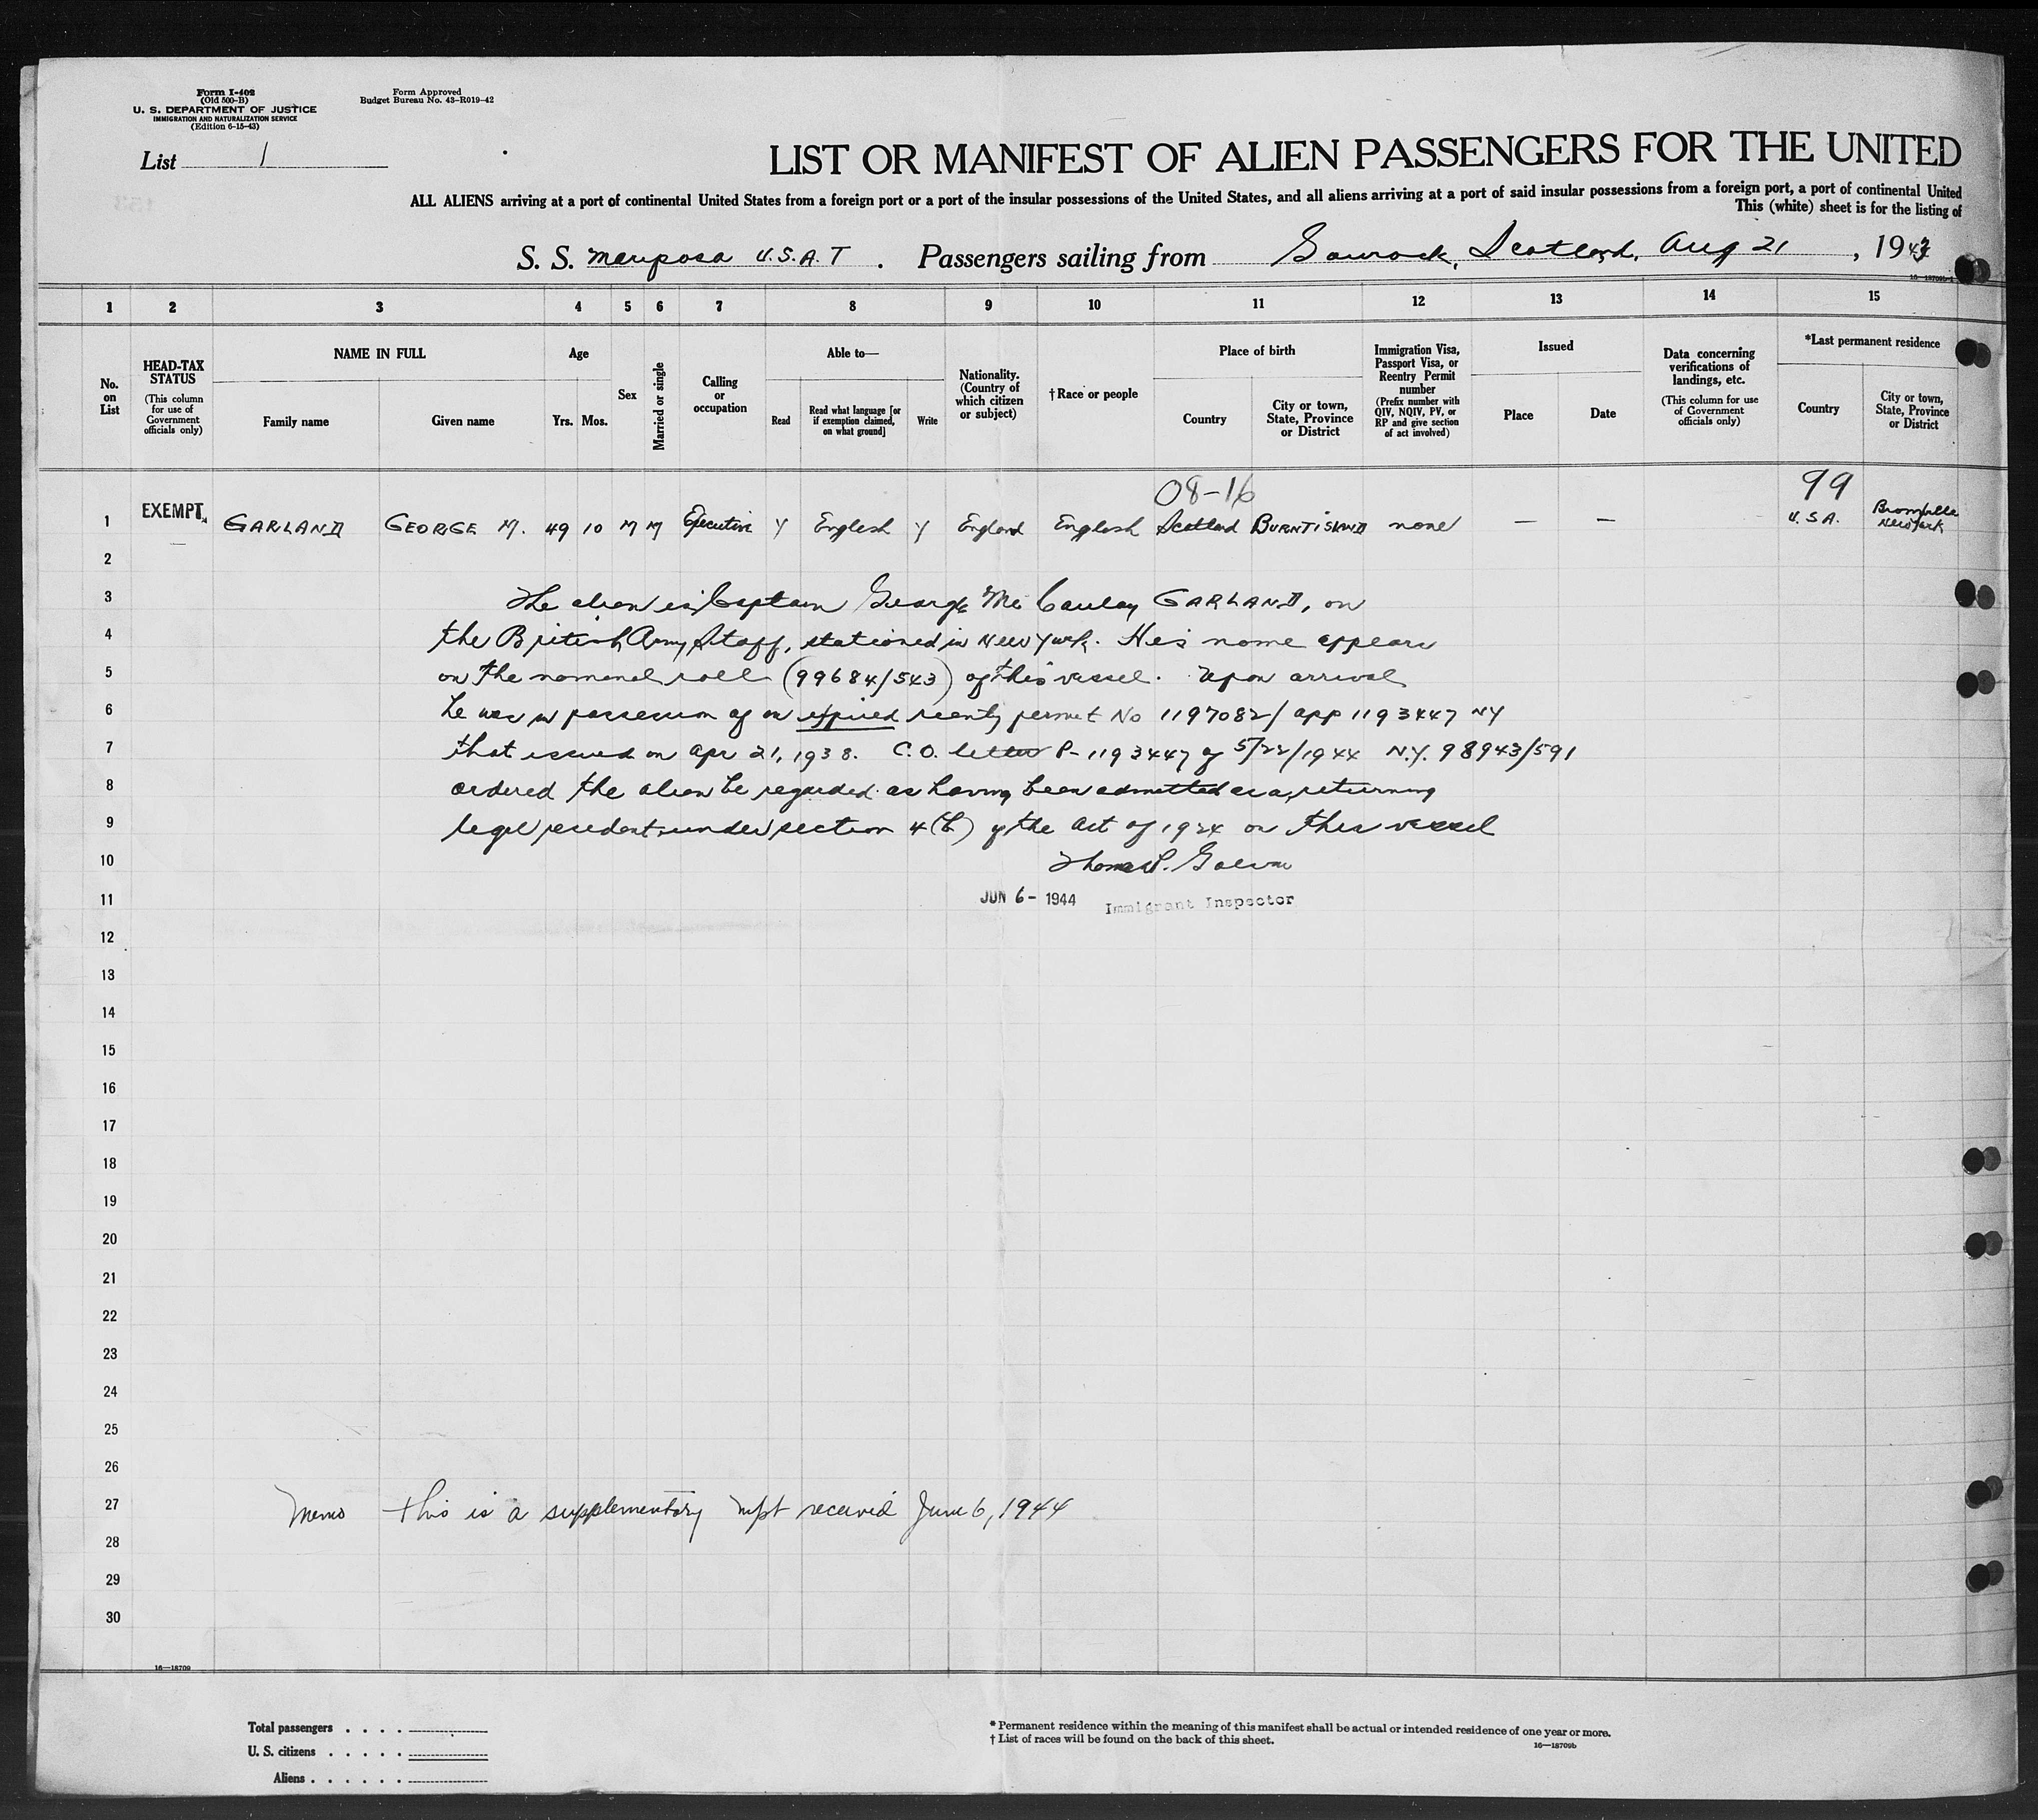 Form I-402
(Old 500-B)
U. S. DEPARTMENT OF JUSTICE
IMMIGRATION AND NATURALIZATION SERVICE
(Edition 6-15-43)
Form Approved
Budget Bureau No. 43-R019-42
List 1
LIST OR MANIFEST OF ALIEN PASSENGERS FOR THE UNITED
ALL ALIENS arriving at a port of continental United States from a foreign port or a port of the insular possessions of the United States, and all aliens arriving at a port of said insular possessions from a foreign port, a port of continental United
This (white) sheet is for the listing of
S. S. Mariposa U.S.A.T. Passengers sailing from Gourock, Scotland, Aug 21, 1943
16—18709b-1
1 2 3 4 5 6 7 8 9 10 11 12 13 14 15
No. on List
HEAD-TAX STATUS
(This column for use of Government officials only)
NAME IN FULL
Family name
Given name
Age
Yrs. Mos.
Sex
Married or single
Calling or occupation
Able to—
Read
Read what language [or if exemption claimed, on what ground]
Write
Nationality. (Country of which citizen or subject)
† Race or people
Place of birth
Country
City or town, State, Province or District
Immigration Visa, Passport Visa, or Reentry Permit number
(Prefix number with QIV, NQIV, PV, or RP and give section of act involved)
Issued
Place
Date
Data concerning verifications of landings, etc.
(This column for use of Government officials only)
*Last permanent residence
Country
City or town, State, Province or District
08-16 99
1 EXEMPT GARLAND GEORGE M. 49 10 M M Executive Y English Y England English Scotland BURNTISLAND none — — U.S.A. Bronxville New York
2
3 The alien is Captain George McCaulay GARLAND, on
4 the British Army Staff, stationed in New York. His name appears
5 on the nominal roll (99684/543) of this vessel. Upon arrival
6 he was in possession of an expired reentry permit No 1197082/ app 1193447 NY
7 that issued on Apr 21, 1938. C.O. letter P-1193447 of 5/22/1944 N.Y. 98943/591
8 ordered the alien be regarded as having been admitted as a returning
9 legal resident under section 4(b) of the Act of 1924 on this vessel
10 Thomas P. Galvin
11 JUN 6- 1944 Immigrant Inspector
12
13
14
15
16
17
18
19
20
21
22
23
24
25
26
27 Memo This is a supplementary mfst received June 6, 1944
28
29
30
16—18709
Total passengers . . . .
U. S. citizens . . . . .
Aliens . . . . . .
* Permanent residence within the meaning of this manifest shall be actual or intended residence of one year or more.
† List of races will be found on the back of this sheet.
16—18709b